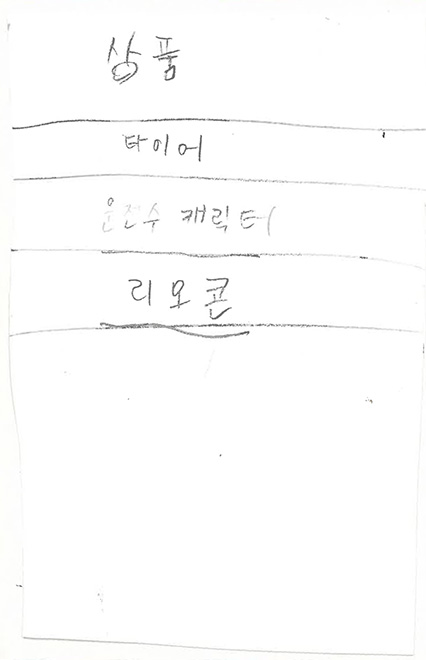 상품
타이어
운전수 캐릭터
리모콘